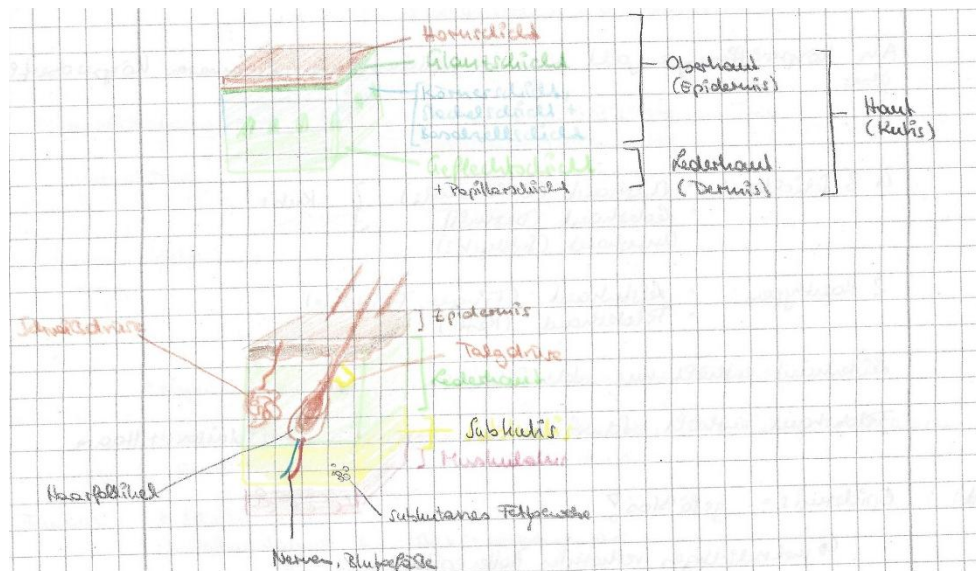 Hornschicht
Glanzschicht
Körnerschicht,
Stachelschicht +
Basalzellschicht
Geflechtschicht
+ Papillarschicht
Oberhaut
(Epidermis)
Lederhaut
(Dermis)
Haut
(Kutis)
Epidermis
Schweißdrüse
Talgdrüse
Lederhaut
Subkutis
Muskulatur
Haarfollikel
subkutanes Fettgewebe
Nerven, Blutgefäße